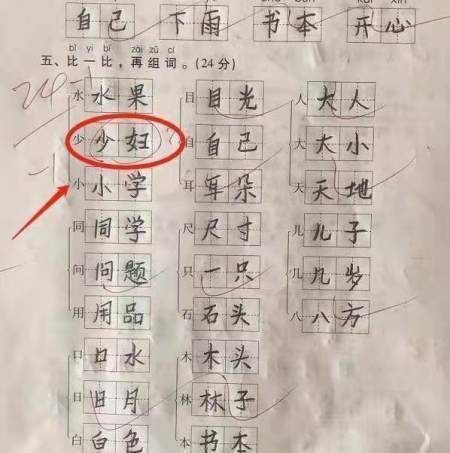 自己 下雨 书本 开心
bǐ yi bǐ zài zǔ cí
五、比一比，再组词。(24分)
水 水果 目 目光 人 大人
少 少妇 自 自己 大 大小
小 小学 耳 耳朵 天 天地
同 同学 尺 尺寸 儿 儿子
问 问题 只 一只 几 几岁
用 用品 石 石头 八 八方
口 口水 木 木头
日 日月 林 林子
白 白色 本 书本